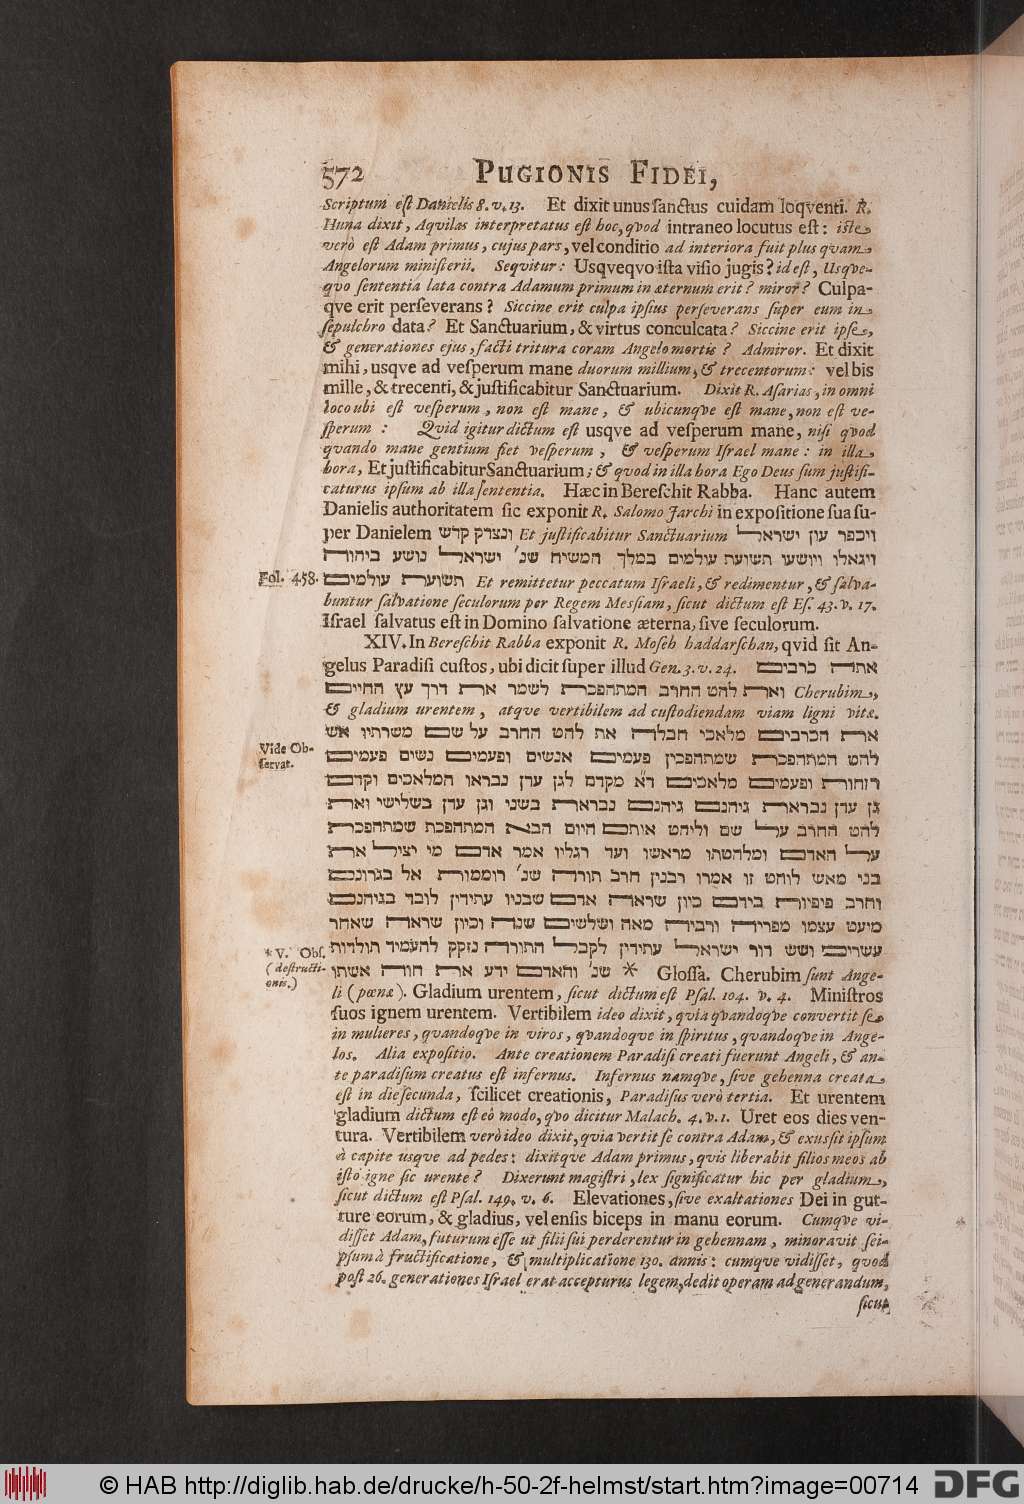 572 PUGIONIS FIDEI,
Scriptum est Danielis 8. v. 13. Et dixit unus sanctus cuidam loqventi. R.
Huna dixit, Aqvilas interpretatus est hoc, qvod intraneo locutus est: iste
verò est Adam primus, cujus pars, vel conditio ad interiora fuit plus qvam
Angelorum minisierii. Seqvitur: Usqveqvo ista visio jugis? id est, Usqve-
qvo sententia lata contra Adamum primum in æternum erit? miror? Culpa-
qve erit perseverans? Siccine erit culpa ipsius perseverans super eum in
sepulchro data? Et Sanctuarium, & virtus conculcata? Siccine erit ipse,
& generationes ejus, facti tritura coram Angelo mortis? Admiror. Et dixit
mihi, usqve ad vesperum mane duorum millium, & trecentorum: vel bis
mille, & trecenti, & justificabitur Sanctuarium. Dixit R. Asarias, in omni
loco ubi est vesperum, non est mane, & ubicunqve est mane, non est ve-
sperum: Qvid igitur dictum est usqve ad vesperum mane, nisi qvod
qvando mane gentium fiet vesperum, & vesperum Israel mane: in illa
hora, Et justificabitur Sanctuarium; & qvod in illa hora Ego Deus sum justifi-
caturus ipsum ab illa sententia. Hæc in Bereschit Rabba. Hanc autem
Danielis authoritatem sic exponit R. Salomo Jarchi in expositione sua su-
per Danielem ונצרק קדש Et justificabitur Sanctuarium ויכפר עון ישראל
ויגאלו ויושעו תשועת עולמים במלך המשיח שנ׳ ישראל נושע ביהוה
Fol. 458. תשועת עולמים Et remittetur peccatum Israeli, & redimentur, & salva-
buntur salvatione seculorum per Regem Messiam, sicut dictum est Es. 43. v. 17.
Israel salvatus est in Domino salvatione æterna, sive seculorum.
XIV. In Bereschit Rabba exponit R. Moseh haddarschan, qvid sit An-
gelus Paradisi custos, ubi dicit super illud Gen. 3. v. 24. אתה כרבים
ואת להט החרב המתהפכת לשמר את דרך עץ החיים Cherubim,
& gladium urentem, atqve vertibilem ad custodiendam viam ligni vitæ.
את הכרבים מלאכי חבלה את להט החרב על שם משרתיו אש
Vide Ob-
servat.
להט המתהפכת שמתהפכין פעמים אנשים ופעמים נשים פעמים
רוחות ופעמים מלאכים דא מקדם לגן עדן נבראו המלאכים וקדם
גן עדן נבראת גיהנם גיהנם נבראת בשני וגן עדן בשלישי ואת
להט החרב על שם וליהט אותם היום הבא המתהפכת שמתהפכת
על האדם ומלהטתו מראשו ועד רגליו אמר אדם מי יציל את
בני מאש לוהט זו אמרו רבנין חרב תורה שנ׳ רוממות אל בגרונם
וחרב פיפיות בידם כיון שראה אדם שבניו עתידין לובד בגיהנם
מיעט עצמו מפריה ורביה מאה ושלשים שנה וכיון שראה שאחר
עשרים ושש דור ישראל עתידין לקבל התורה נזקק להעמיד תולדות
* V. Obs.
(destructi-
onis.)
שנ׳ והאדם ידע את חוה אשתו * Glossa. Cherubim sunt Ange-
li (pœnæ). Gladium urentem, sicut dictum est Psal. 104. v. 4. Ministros
suos ignem urentem. Vertibilem ideo dixit, qvia qvandoqve convertit se
in mulieres, qvandoqve in viros, qvandoqve in spiritus, qvandoqve in Ange-
los. Alia expositio. Ante creationem Paradisi creati fuerunt Angeli, & an-
te paradisum creatus est infernus. Infernus namqve, sive gehenna creata
est in die secunda, scilicet creationis, Paradisus verò tertia. Et urentem
gladium dictum est eò modo, qvo dicitur Malach. 4. v. 1. Uret eos dies ven-
tura. Vertibilem verò ideo dixit, qvia vertit se contra Adam, & exussit ipsum
à capite usqve ad pedes: dixitqve Adam primus, qvis liberabit filios meos ab
isto igne sic urente? Dixerunt magistri, lex significatur hic per gladium,
sicut dictum est Psal. 149. v. 6. Elevationes, sive exaltationes Dei in gut-
ture eorum, & gladius, vel ensis biceps in manu eorum. Cumqve vi-
disset Adam, futurum esse ut filii sui perderentur in gehennam, minoravit sei-
psum à fructificatione, & multiplicatione 130. annis: cumqve vidisset, qvod
post 26. generationes Israel erat accepturus legem, dedit operam ad generandum,
sicut
© HAB http://diglib.hab.de/drucke/h-50-2f-helmst/start.htm?image=00714 DFG